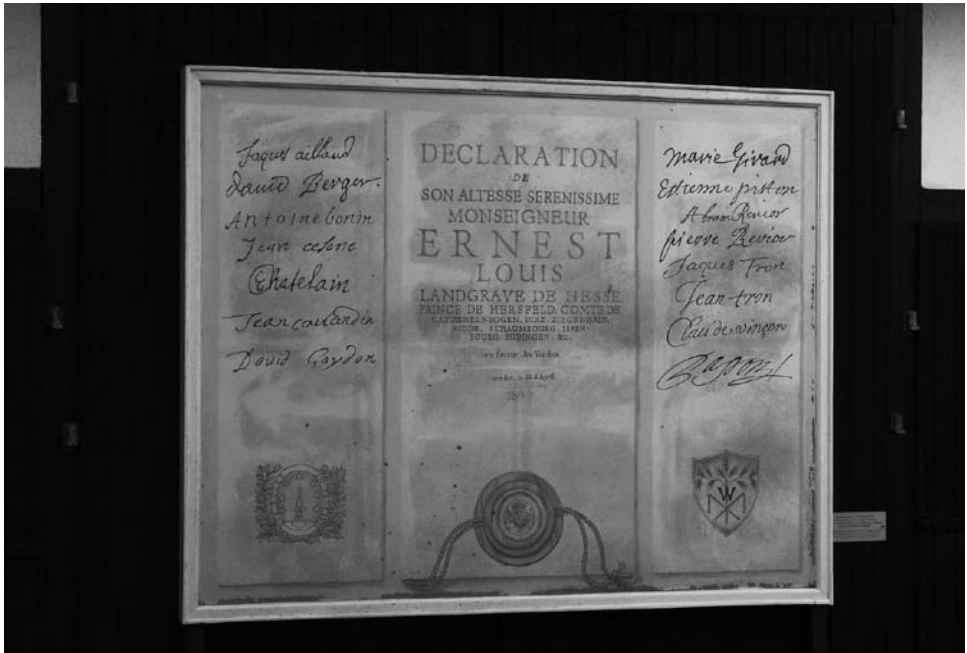 Jaques aillaud
david Berger.
Antoine bonin
Jean cesone
Chatelain
Jean coulandin
David Gaydon
DECLARATION
DE
SON ALTESSE SERENISSIME
MONSEIGNEUR
ERNEST
LOUIS
LANDGRAVE DE HESSE,
PRINCE DE HERSFELD, COMTE DE
CATZENELNBOGEN, DIEZ, ZIEGENHAIN,
NIDDE, SCHAUMBOURG, ISEN-
BOURG, BUDINGEN, &c.
en faveur des Vaudois
marie Girard
Estienne piston
Abram Revior
pierre Revior
Jaques Tron
Jean tron
Claude vinçon
Papon
W